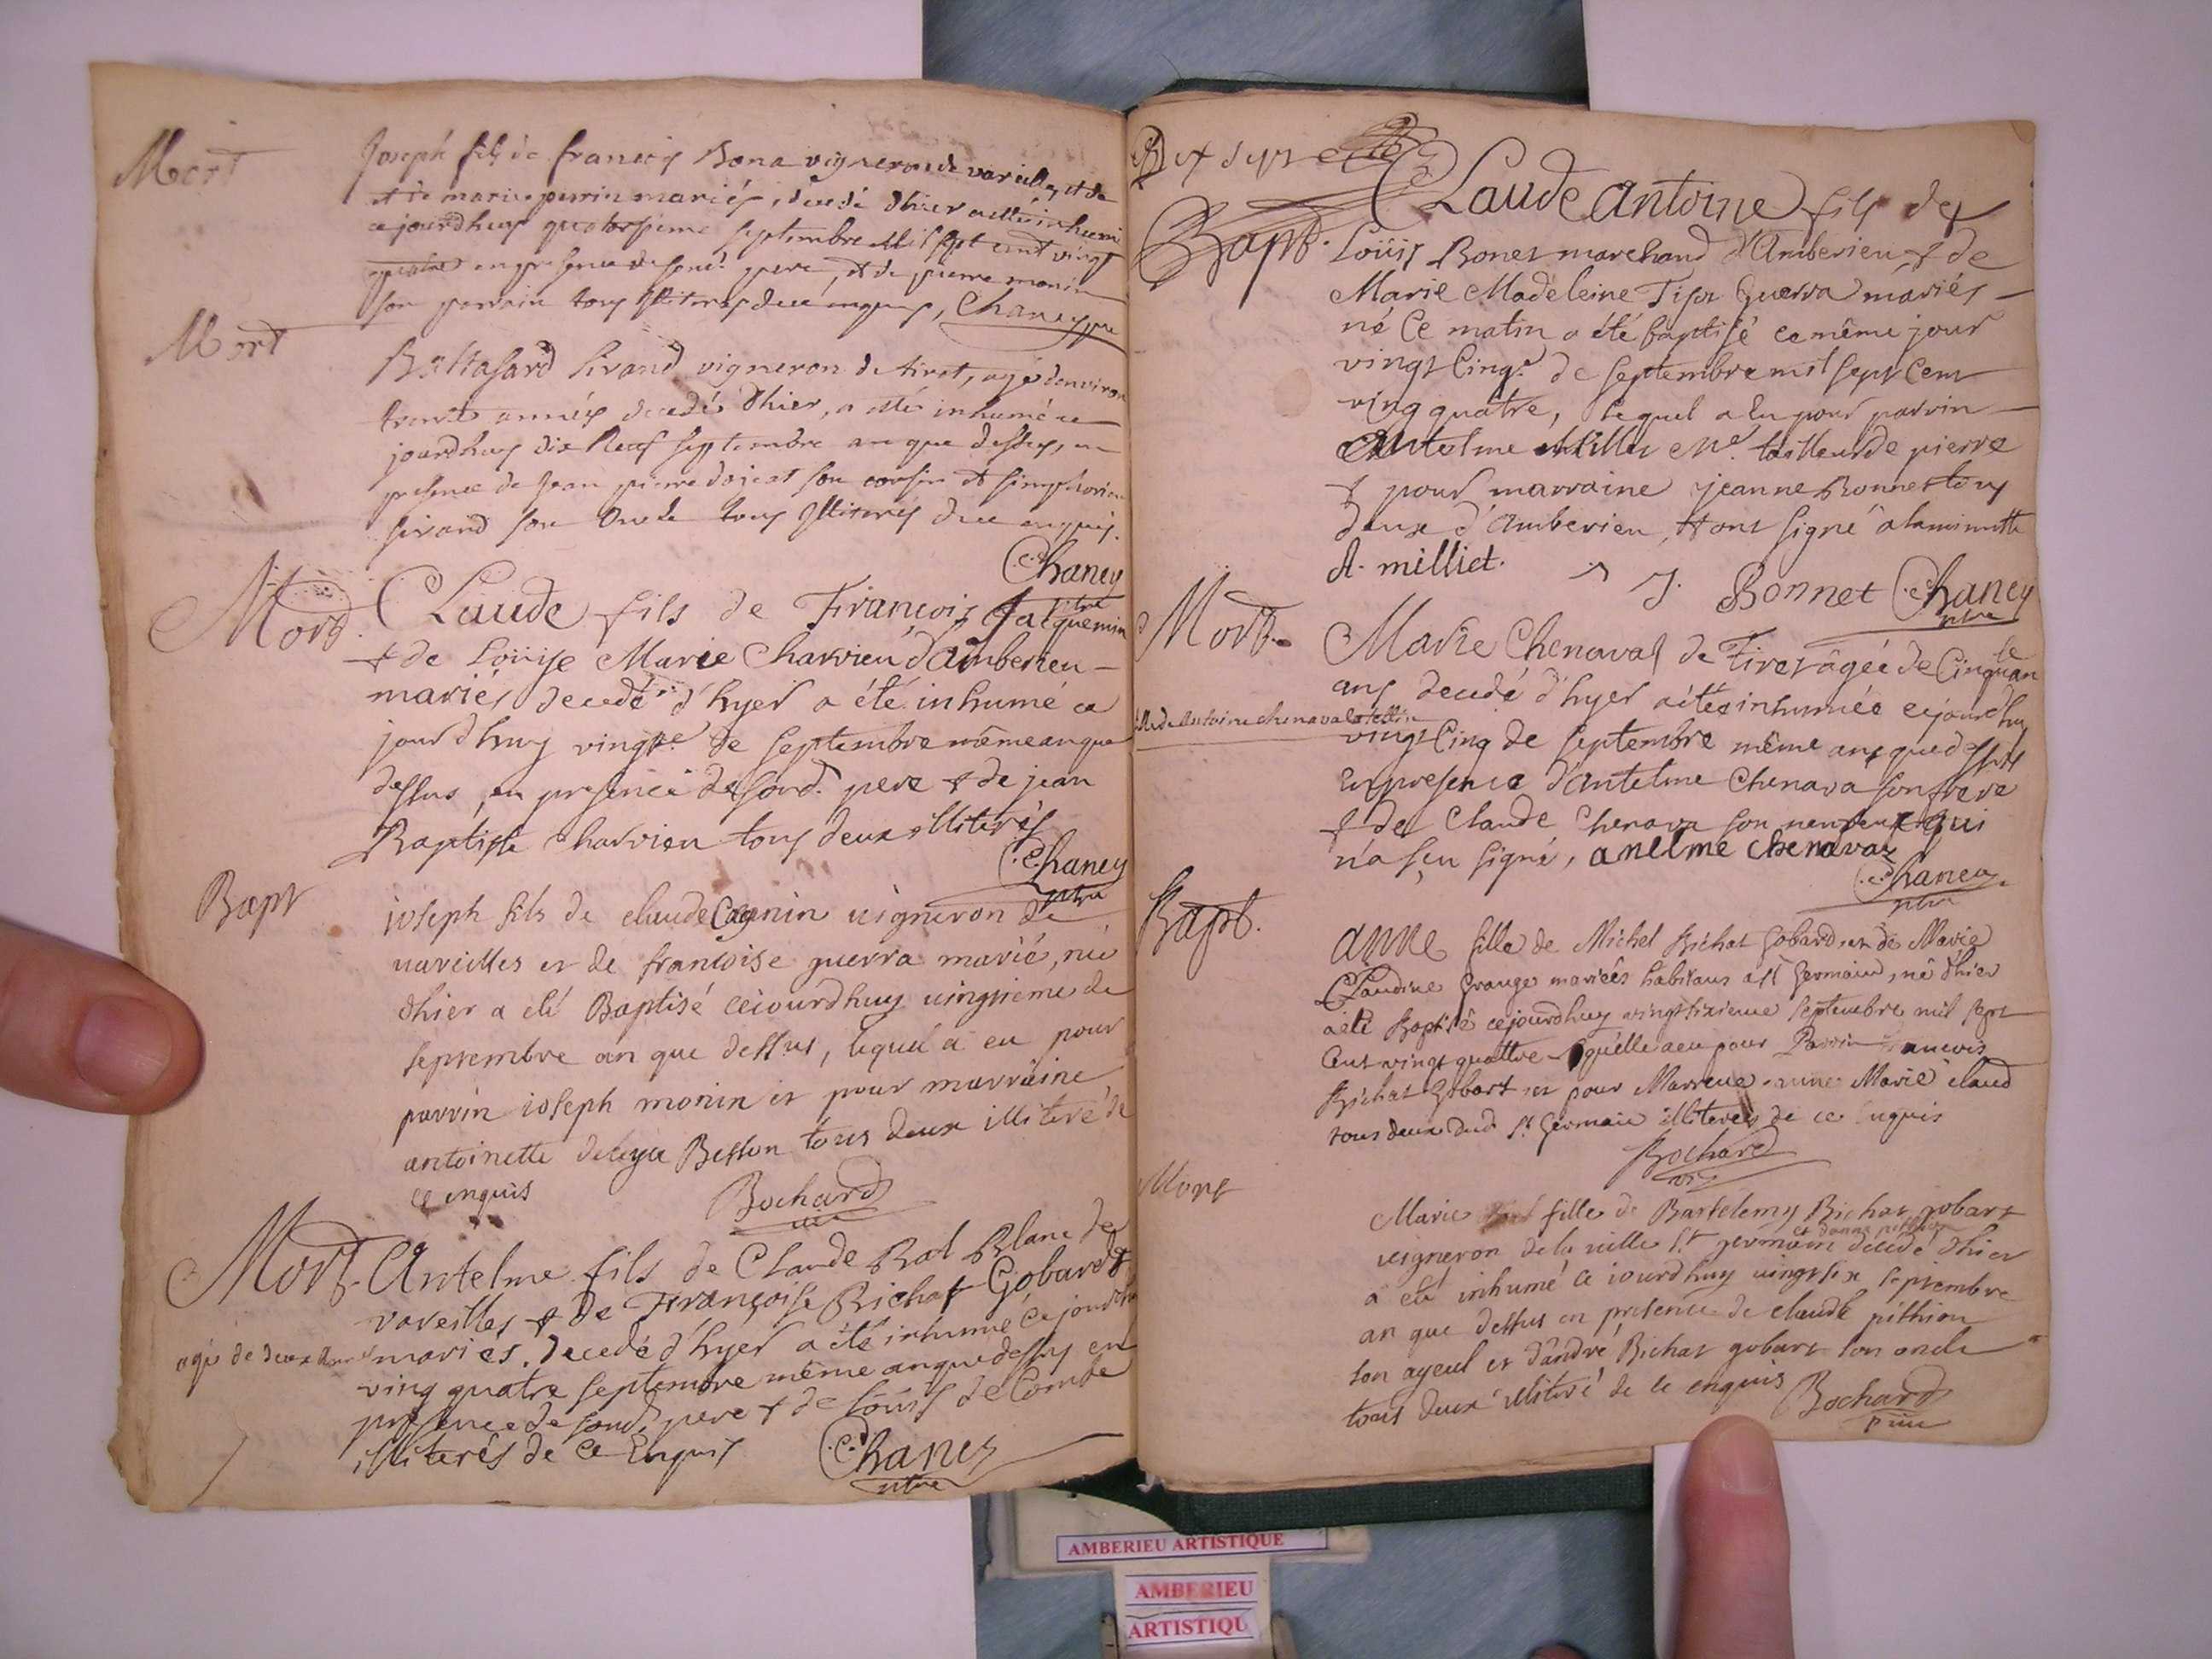 Mort
Joseph fils de francois Bona vigneron de vareilles et de
et de marie perrin mariés, decedé d'hier a etté inhumé
ce jourd'huy quatorsieme septembre Mil sept cent vingt
quatre en presence de sond. pere, et de pierre monin
son parrain tous illiterés de ce enquis, Chaney ptre
Mort
Baltasard Sirand vigneron de tiret, agé denviron
trente années decedé d'hier, a etté inhumé ce
jourdhuy dix neuf septembre an que dessus, en
presence de Jean pierre son cousin et simphorien
sirand son oncle tous Illiterés de ce enquis.
Chaney
ptre
Mort
Claude fils de François Jacquemin
& de Loüise Marie Charvieu d'Amberieu
mariés decedé d'hyer a été inhumé ce
jourdhuy vingte. de septembre même an que
dessus, en presence de sond. pere & de jean
Baptiste Charvieu tous deux illiterés
Chaney
ptre
Bapt
ioseph fils de claude Cagnin uigneron de
uareilles et de francoise guerra marié, né
dhier a eté Baptisé ceiourdhuy uingtieme de
septembre an que dessus, lequel a eu pour
parrin ioseph monin et pour marraine
antoinette Besson tous deux illiteré de
ce enquis
Bochard
uic
Mort
Antelme fils de Claude Bal Blanc de
vareilles & de Françoise Bichat Gobard
agé de deux ans
mariés. decedé d'hyer a été inhumé ce jourd'hu
ving quatre septembre même an que dessus en
presence de sond. pere & de Loüis de Combe
illiterés de ce Enquis
Chaney
ptre
Dix sept
Bapt.
Claude Antoine fils de
Loüis Bonet marchand d'Amberieu & de
Marie Madeleine Tisot Guerra mariés
né ce matin a été baptisé ce même jour
vingt Cinqe. de septembre mil sept Cent
ving quatre, lequel a eu pour parrin
Antelme Milliet Me. tailleur de pierre
& pour marraine jeanne Bonnet tous
deux d'Amberieu, & ont signé a la minutte
A. milliet.
J. Bonnet Chaney
ptre
Mort
Marie Chenaval de Tiret âgée de Cinquante
ans decedé d'hyer a été inhumée cejourdhuy
fille de Antoine chenaval et
vingt Cinq de septembre même an que dessus
En presence d'antelme Chenava son frere
& de Claude Chenava son neuveu qui
n'a sçu signé, anelme chenavaz
Chaney
ptre
Bapt.
Anne fille de Michel Bichat Gobard et de Marie
Claudine Grange mariées habitans a St Germain, né d'hier
a eté Baptisé cejourdhuy vingt sixieme septembre mil sept
Cent vingt quattre laquelle a eu pour Parrin francois
Bichat Gobart et pour Marrene anne Marie claud
tous deux dud St Germain illiterés de ce Enquis
Bochard
vic
Mort
Marie fille de Bartelemy Bichat gobart
et danne pithion
uigneron de la uille St germain decedé dhier
a eté inhumé ce iourdhuy uingt six septembre
an que dessus en presence de claude pithion
son ayeul et dandré Bichat gobart son oncle
tous deux illiteré de ce enquis
Bochard
p uic
AMBERIEU ARTISTIQUE
AMBERIEU
ARTISTIQU